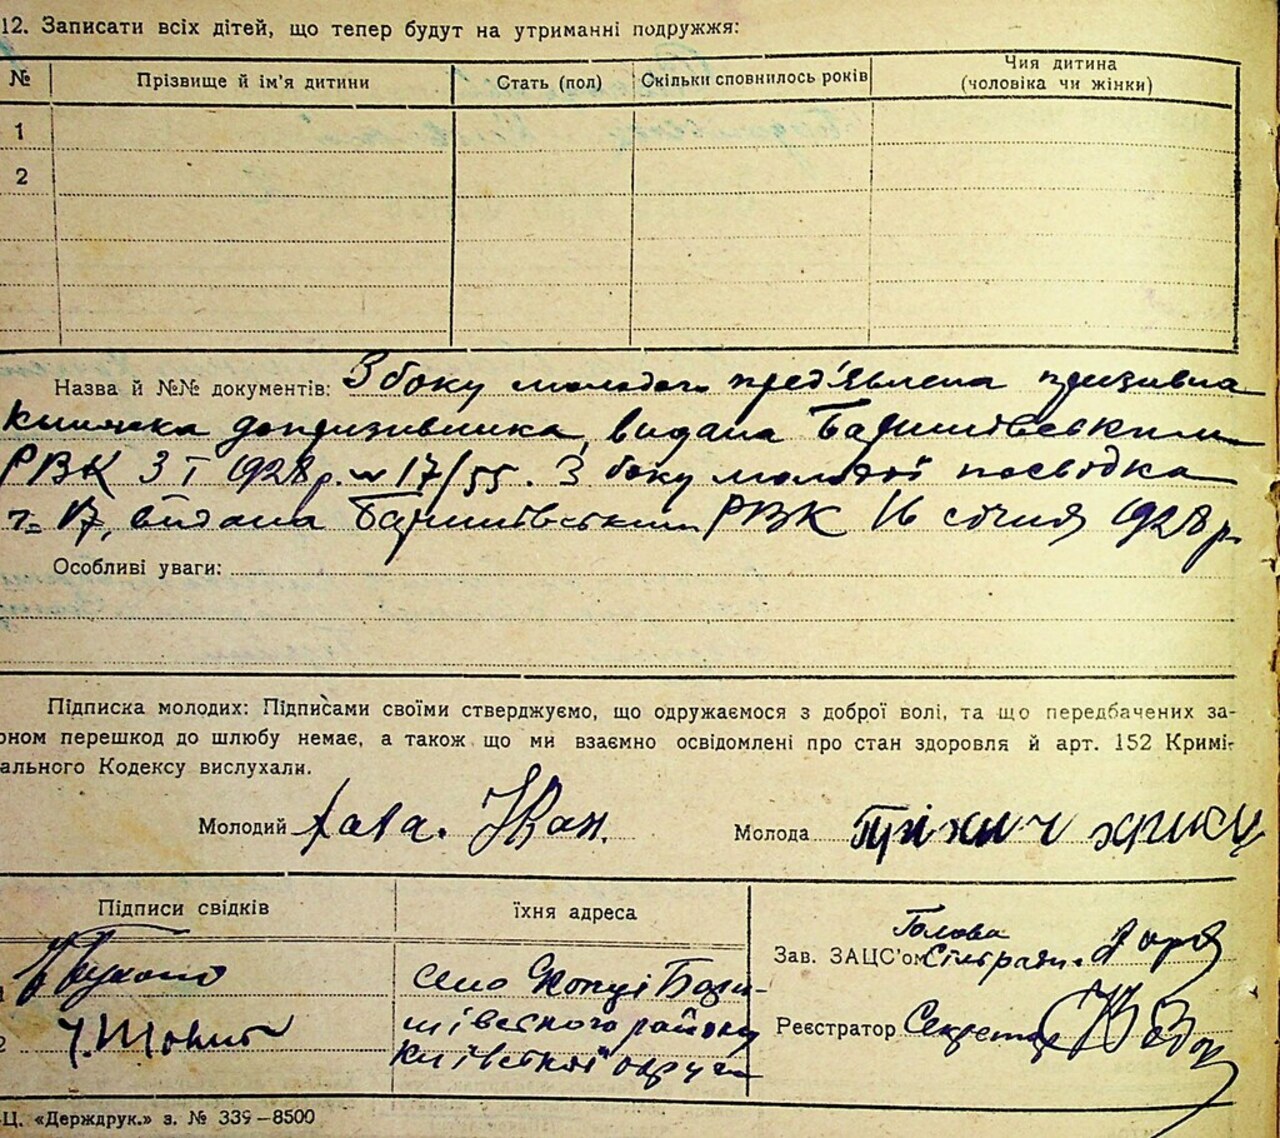 12. Записати всіх дітей, що тепер будут на утриманні подружжя:
№ Прізвище й ім'я дитини Стать (пол) Скільки сповнилось років Чия дитина
(чоловіка чи жінки)
1
2
Назва й №№ документів: З боку молодого пред'явлена призивна
книжка допризивника, видана Баришівським
РВК 3 I 1928 р. № 17/55. З боку молодої посвідка
ч. 17, видана Баришівським РВК 16 січня 1928 р.
Особливі уваги:
Підписка молодих: Підписами своїми стверджуємо, що одружаємося з доброї волі, та що передбачених за-
оном перешкод до шлюбу немає, а також що ми взаємно освідомлені про стан здоровля й арт. 152 Кримі-
ального Кодексу вислухали.
Молодий Хава. Іван. Молода
Підписи свідків їхня адреса
Голова
Зав. ЗАЦС'ом Сільради.
село Бари-
шівського району
Київської округи
Реєстратор Секретар
1
2
Ц. «Держдрук.» з. № 339—8500